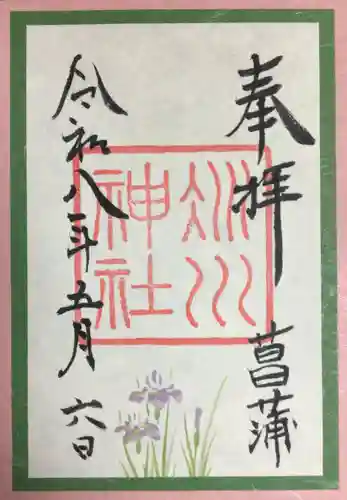 奉拝 菖蒲
氷川
神社
令和八年五月六日